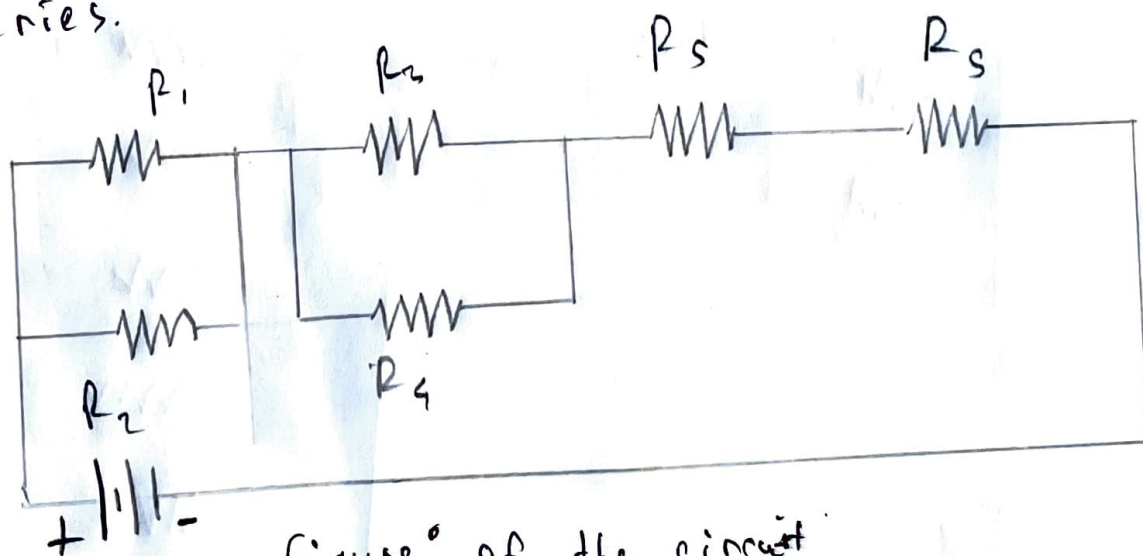 ries.
R1
R3
R5
R5
R2
R4
+
-
figure of the circuit